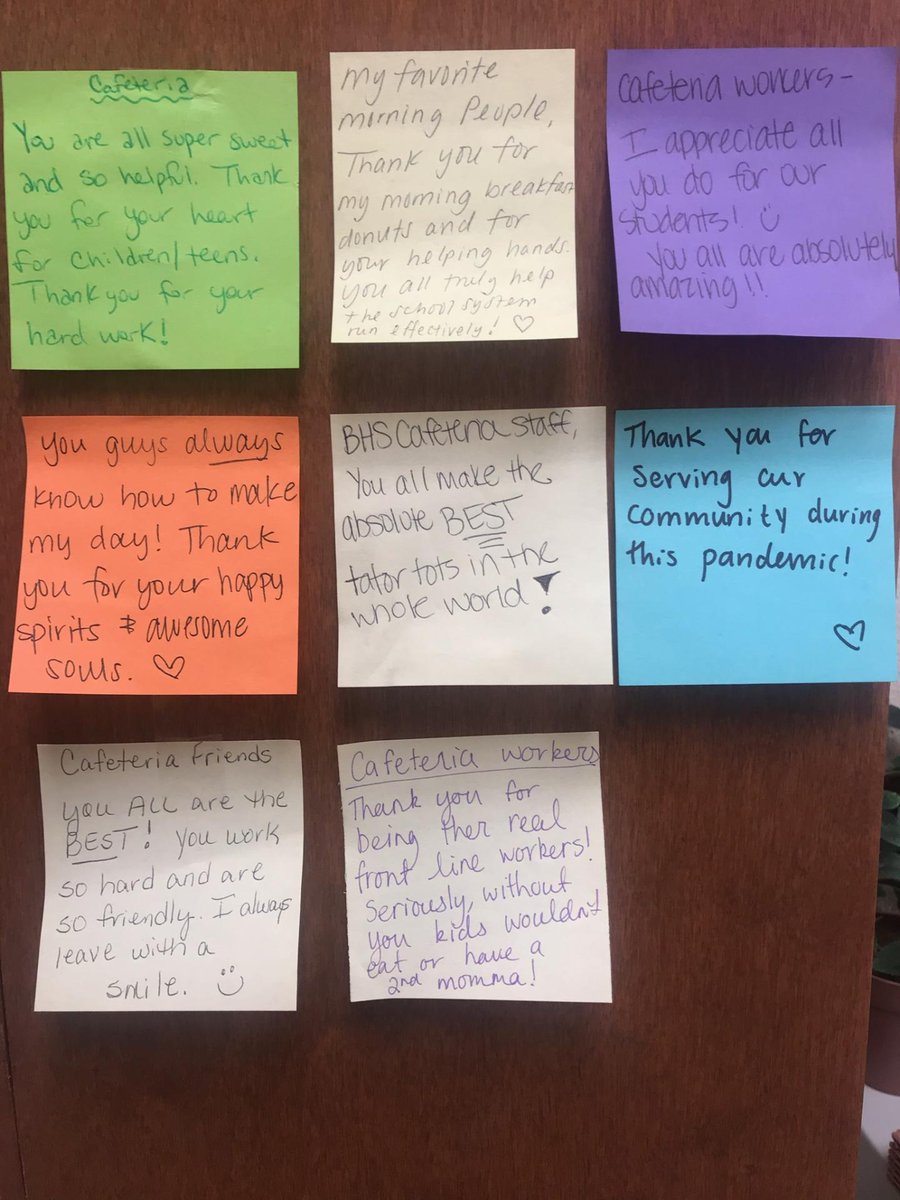 Cafeteria
You are all super sweet
and so helpful. Thank
you for your heart
for children/teens.
Thank you for your
hard work!
My favorite
morning People,
Thank you for
my morning breakfast
donuts and for
your helping hands.
you all truly help
the school system
run effectively! ♡
Cafeteria workers-
I appreciate all
you do for our
students! ☺
You all are absolutely
amazing!!
you guys always
know how to make
my day! Thank
you for your happy
spirits & awesome
souls. ♡
BHS Cafeteria staff,
You all make the
absolute BEST
tator tots in the
whole world!
Thank you for
Serving our
community during
this pandemic!
♡
Cafeteria Friends
you ALL are the
BEST! you work
so hard and are
so friendly. I always
leave with a
smile. ☺
Cafeteria workers
Thank you for
being ther real
front line workers!
Seriously, without
you kids wouldn't
eat or have a
2nd momma!